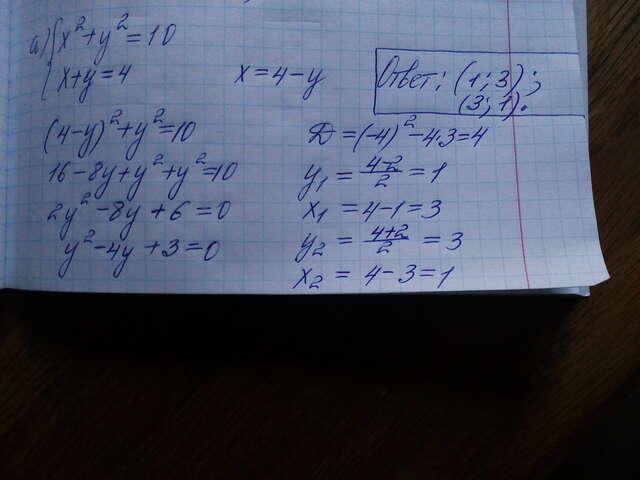 а) { x² + y² = 10
x + y = 4
x = 4 - y
Ответ: (1; 3);
(3; 1).
(4-y)² + y² = 10
16 - 8y + y² + y² = 10
2y² - 8y + 6 = 0
y² - 4y + 3 = 0
D = (-4)² - 4·3 = 4
y₁ = (4-2)/2 = 1
x₁ = 4 - 1 = 3
y₂ = (4+2)/2 = 3
x₂ = 4 - 3 = 1